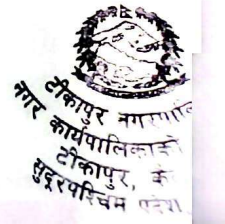 टीकापुर नगरपालि
नगर कार्यपालिकाको
टीकापुर, कै
सुदूरपश्चिम प्रदेश